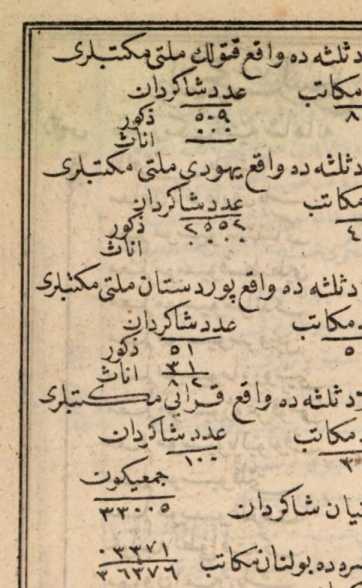 دثلثه ده واقع قتولك ملتی مكتبلری
مكاتب عدد شاكردان
٨ ٥٠٩ ذكور
٠٠٠ اناث
دثلثه ده واقع یهودی ملتی مكتبلری
مكاتب عدد شاكردان
٤ ٢٥٥٢ ذكور
٠٠٠٠ اناث
دثلثه ده واقع پوردستان ملتی مكتبلری
مكاتب عدد شاكردان
٥ ٥١ ذكور
٣١ اناث
٨٢
دثلثه ده واقع قرائی مكتبلری
مكاتب عدد شاكردان
٣ ١٠٠
جمعیكون
یان شاكردان ٣٣٠٠٥
٠٣٣٧١
ره ده بولنان مكاتب ٣٦٣٧٦